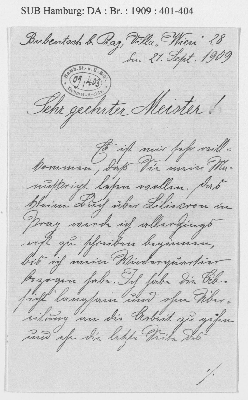 SUB Hamburg: DA : Br. : 1909 : 401-404
Bubentsch b. Prag, Villa „Wien" 28
den 21. Sept. 1909
09.403
Sehr geehrter Meister!
Es ist mir sehr will-
kommen, daß Sie mein Ma-
nuskript lesen wollen. Das
kleine Buch über Liliencron in
Prag werde ich allerdings
erst zu schreiben beginnen,
bis ich mein Winterquartier
bezogen habe. Ich habe die Ab-
sicht langsam und ohne Über-
eilung an die Arbeit zu gehen
und ehe die letzte Seite des